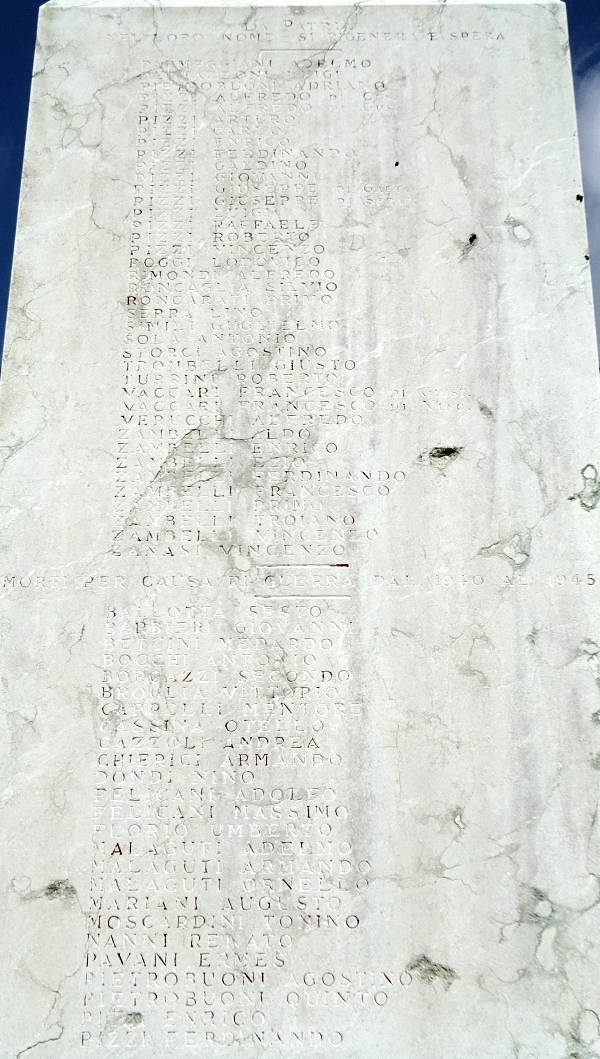 LA PATRIA
NEL LORO NOME SI RIGENERA E SPERA
PARMEGGIANI ADELMO
LUIGI
ADRIANO
PIZZI ALFREDO DI
PIZZI ALFREDO DI
PIZZI ARTURO
PIZZI CARLO
PIZZI ENRICO
PIZZI FERDINANDO
PIZZI GALDINO
PIZZI GIOVANNI
PIZZI GIUSEPPE DI
PIZZI GIUSEPPE DI
PIZZI LUIGI
PIZZI RAFFAELE
PIZZI ROBERTO
PIZZI VINCENZO
POGGI LODOVICO
RIMONDI ALFREDO
RONCAGLIA SILVIO
RONCARATI PRIMO
SERRA LINO
SIMILI GUGLIELMO
SOLA ANTONIO
STORCI AGOSTINO
TROMBELLI GIUSTO
TURRINI ROBERTO
VACCARI FRANCESCO DI GIUS.
VACCARI FRANCESCO DI VINC.
VERUCCHI ALFREDO
ZAMBELLI ALDO
ZAMBELLI ENRICO
ZAMBELLI
ZAMBELLI FERDINANDO
ZAMBELLI FRANCESCO
ZAMBELLI PRIMO
ZAMBELLI TROIANO
ZAMBELLI VINCENZO
ZANASI VINCENZO
MORTI PER CAUSA DI GUERRA DAL 1940 AL 1945
BALLOTTA SESTO
BARBIERI GIOVANNI
BETTINI MEDARDO
BOCCHI ANTONIO
BORGAZZI SECONDO
BROGLIA VITTORIO
CARPELLI MENTORE
CASSINA OTELLO
CAZZOLI ANDREA
GHIERICI ARMANDO
DONDI NINO
FELICANI ADOLFO
FELICANI MASSIMO
FLORIO UMBERTO
MALAGUTI ADELMO
MALAGUTI ARMANDO
MALAGUTI ORNELLO
MARIANI AUGUSTO
MOSCARDINI TONINO
NANNI RENATO
PAVANI ERMES
PIETROBUONI AGOSTINO
PIETROBUONI QUINTO
ENRICO
PIZZI FERDINANDO